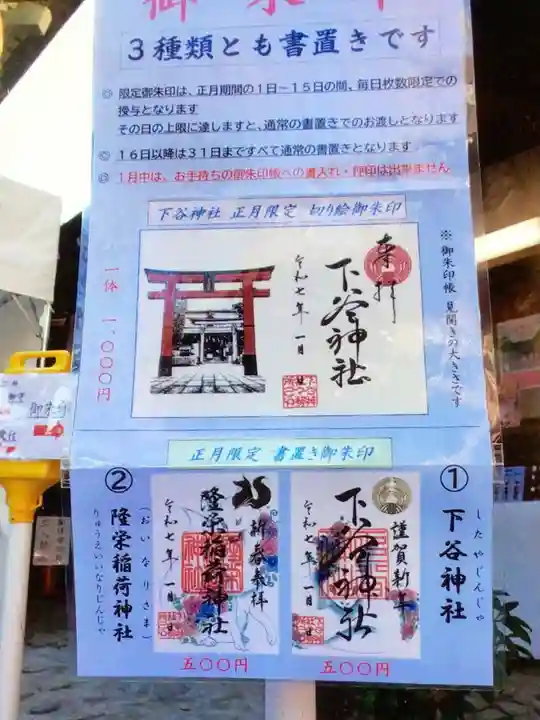 御朱印
3種類とも書置きです
◎ 限定御朱印は、正月期間の1日～15日の間、毎日枚数限定での
授与となります
その日の上限に達しますと、通常の書置きでのお渡しとなります
◎ 16日以降は31日まですべて通常の書置きとなります
◎ 1月中は、お手持ちの御朱印帳への書入れ・押印は出来ません
下谷神社 正月限定 切り絵御朱印
※御朱印帳 見開きの大きさです
奉拝
下谷神社
令和七年一月 日
一体 一、〇〇〇円
正月限定 書置き御朱印
① 下谷神社
したやじんじゃ
謹賀新年
下谷神社
令和七年一月 日
五〇〇円
② 隆栄稲荷神社
(おいなりさま)
りゅうえいいなりじんじゃ
新春参拝
隆栄稲荷神社
令和七年一月 日
五〇〇円